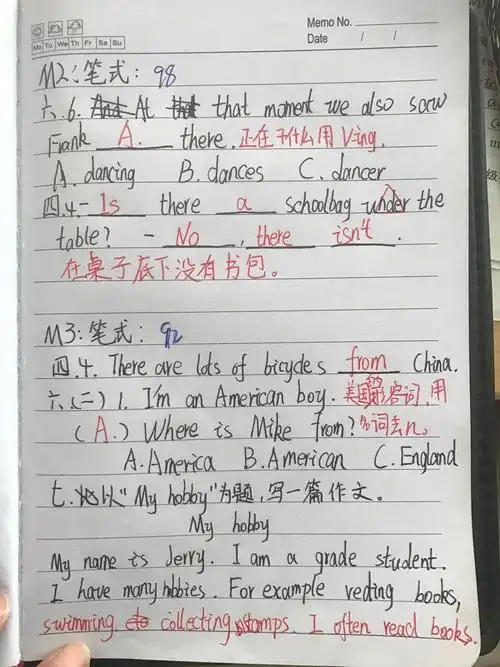 Memo No.
Mo Tu We Th Fr Sa Su
Date / /
M2:笔式: 98
六.6. At that moment we also saw
Frank A. there. 正在干什么用Ving.
A. dancing B. dances C. dancer
四.4.- Is there a schoolbag under the
table? - No, there isn't.
在桌子底下没有书包。
M3:笔式: 92
四.4. There are lots of bicycles from China.
六.(二) 1. I'm an American boy. 美国的 容词,用
(A.) Where is Mike from? 名词去n。
A. America B. American C. England
七. 以"My hobby"为题,写一篇作文。
My hobby
My name is Jerry. I am a grade student.
I have many hbbies. For example reding books,
swimming collecting stamps. I often read books.